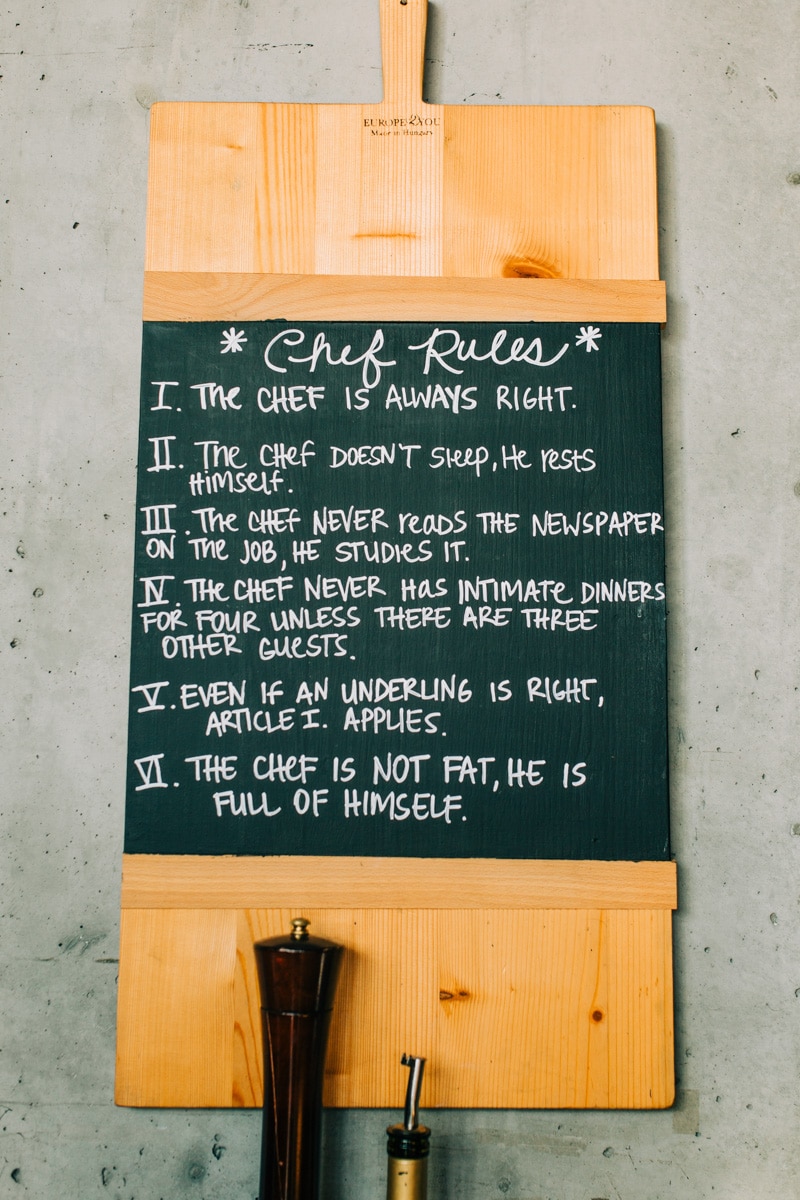 EUROPE2YOU
Made in Hungary
* Chef Rules *
I. The CHEF IS ALWAYS RIGHT.
II. The Chef DOESN'T Sleep, He rests
Himself.
III. The CHEF NEVER reads THE NEWSPAPER
ON The JOB, HE STUDIES IT.
IV. THE CHEF NEVER Has INTIMATE DINNERS
FOR FOUR UNLESS THERE ARE THREE
OTHER GUESTS.
V. EVEN IF AN UNDERLING IS RIGHT,
ARTICLE I. APPLIES.
VI. THE CHEF IS NOT FAT, HE IS
FULL OF HIMSELF.